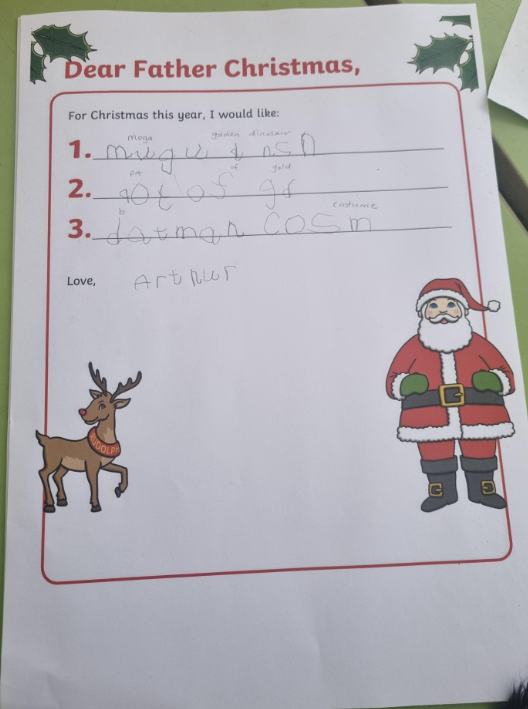 Dear Father Christmas,
For Christmas this year, I would like:
mega garden dinosaur
1. mugu
pot of gold
2. pot of gd
costume
b
3. datman cosm
Love, Arthur
RUDOLPH